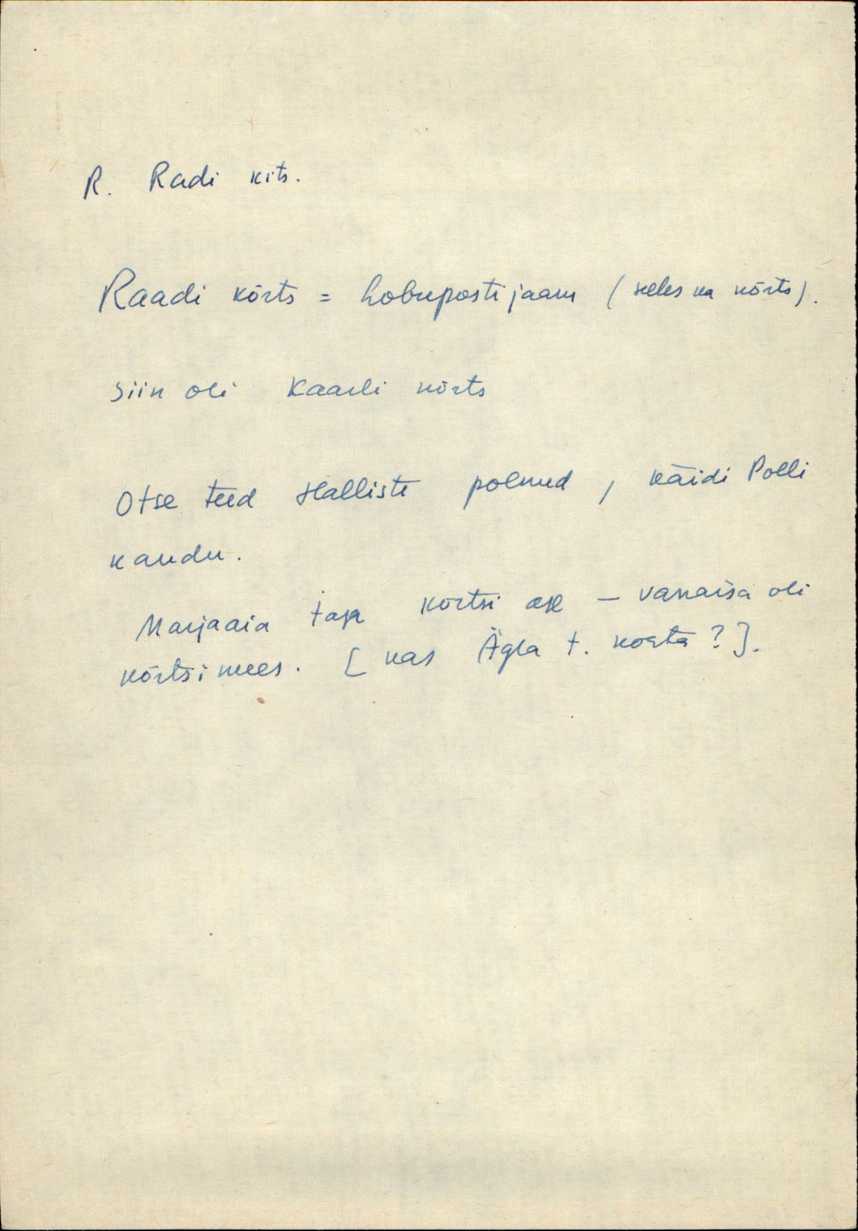 R. Radi kits.
Raadi kõrts = hobupostijaam ( ka kõrts).
Siin oli Kaarli kõrts
Otse teed Halliste polnud, käidi Polli
kaudu.
Marjaaia taga kõrtsi ase – vanaisa oli
kõrtsimees. [kas Ägla t. kohta?].